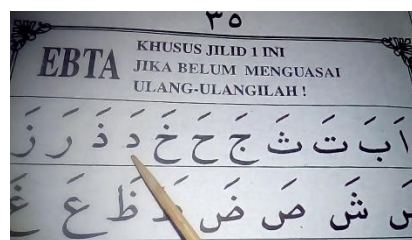 ٣٥
EBTA
KHUSUS JILID 1 INI
JIKA BELUM MENGUASAI
ULANG-ULANGILAH !
اَ بَ تَ ثَ جَ حَ خَ دَ ذَ رَ زَ
سَ شَ صَ ضَ ظَ عَ غَ